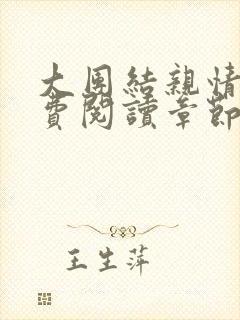 大團結親情
費閱讀章節
王生萍